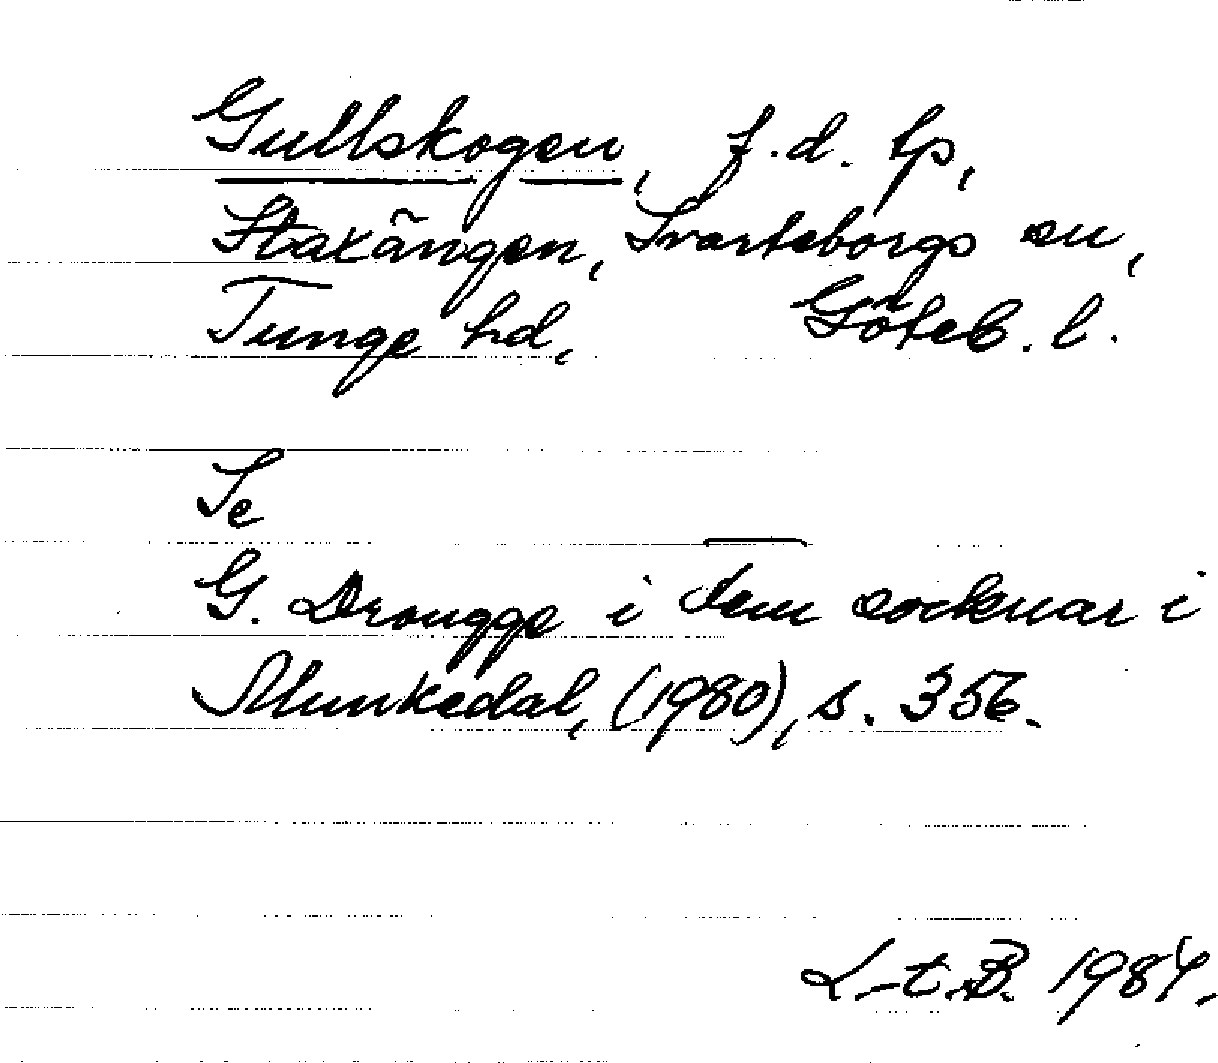 Gullskogen, f.d. tp,
Staxängen, Svarteborgs sn,
Tunge hd, Göteb. l.
Se
G. Drougge i Fem socknar i
Munkedal, (1980), s. 356.
L-t.B. 1984.